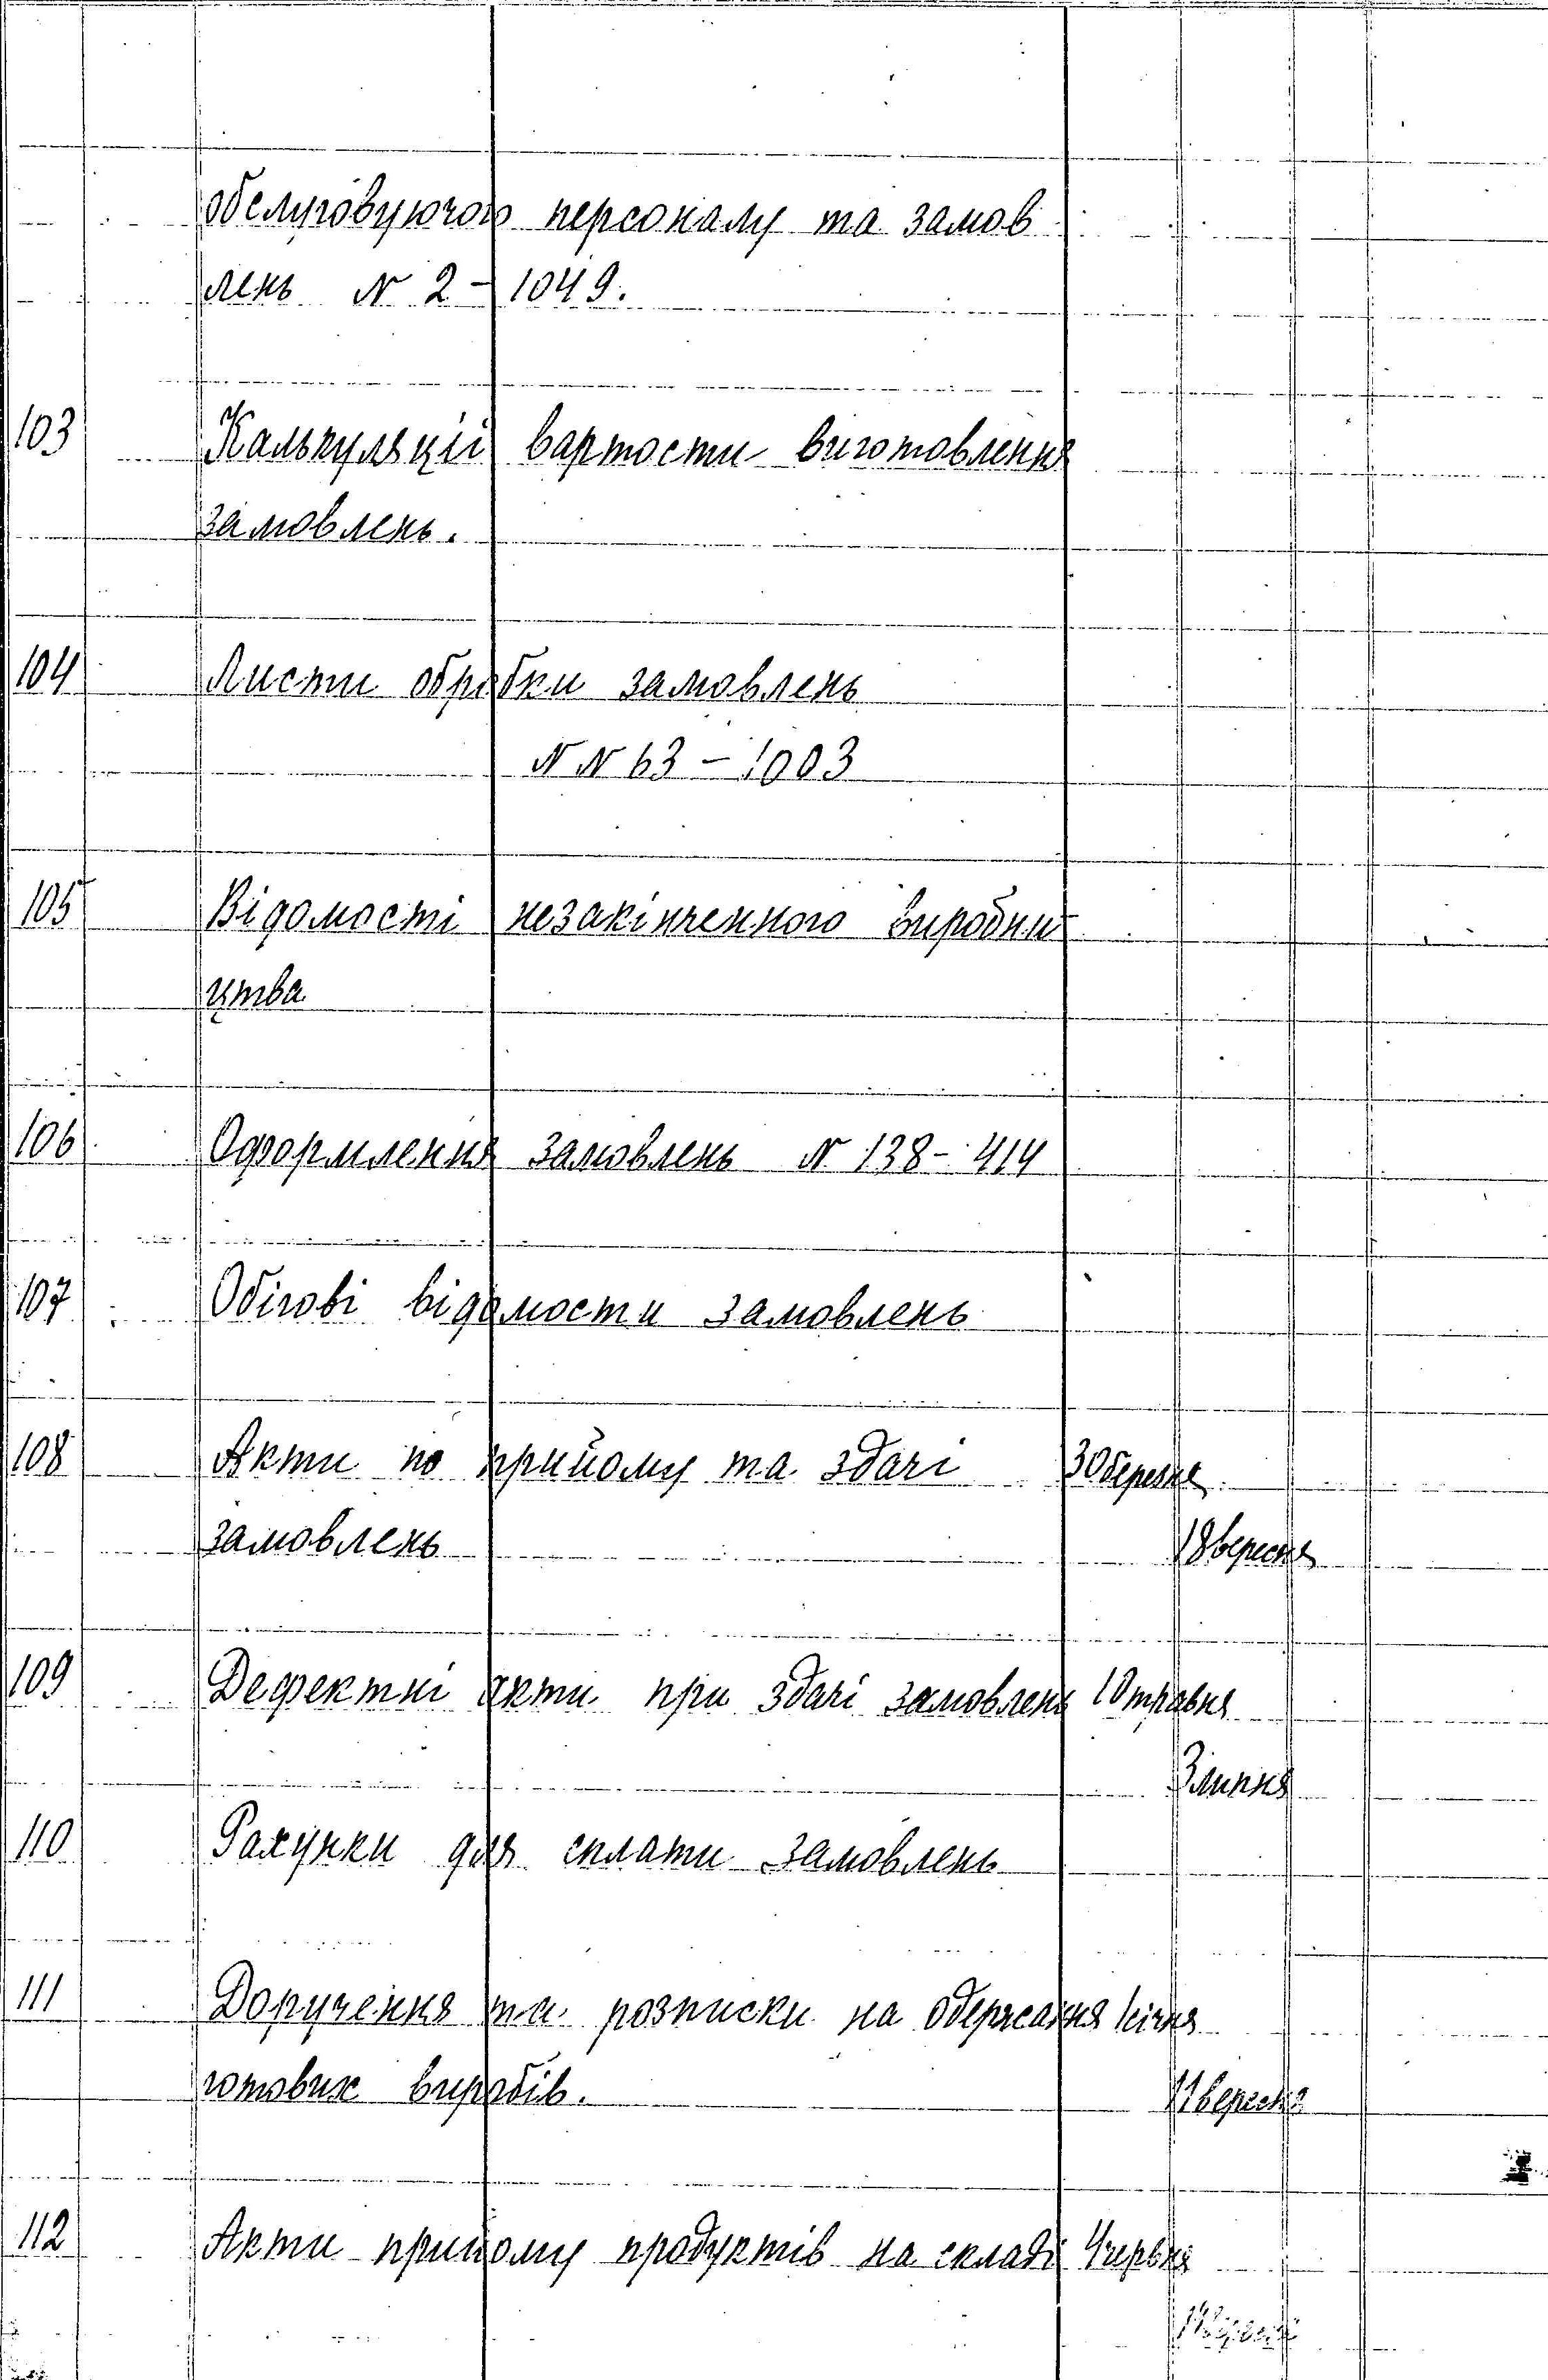 обслуговуючого персоналу та замов
лень N 2 - 1049.
103 Калькуляції вартости виготовлення
замовлень.
104 Листи обробки замовлень
N N 63 - 1003
105 Відомості незакінченного виробни
цтва
106 Оформлення замовлень N 138 - 414
107 Обігові відомости замовлень
108 Акти по прийому та здачі 30 березня
замовлень 18 вересня
109 Дефектні акти при здачі замовлень 10 травня
3 липня
110 Рахунки для сплати замовлень
111 Доручення та розписки на одержання 1 січня
готових виробів. 11 вересня
112 Акти прийому продуктів на складі 4 червня